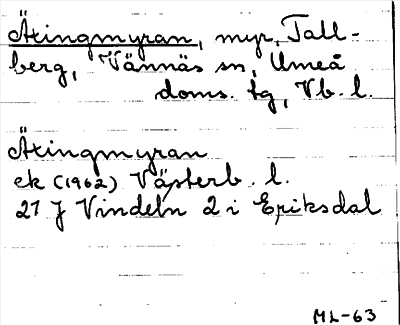 Äxingmyran, myr, Tall-
berg, Vännäs sn, Umeå
doms. tg, Vb. l.
Äxingmyran
ek (1962) Västerb. l.
21 J Vindeln 2 i Eriksdal
ML-63